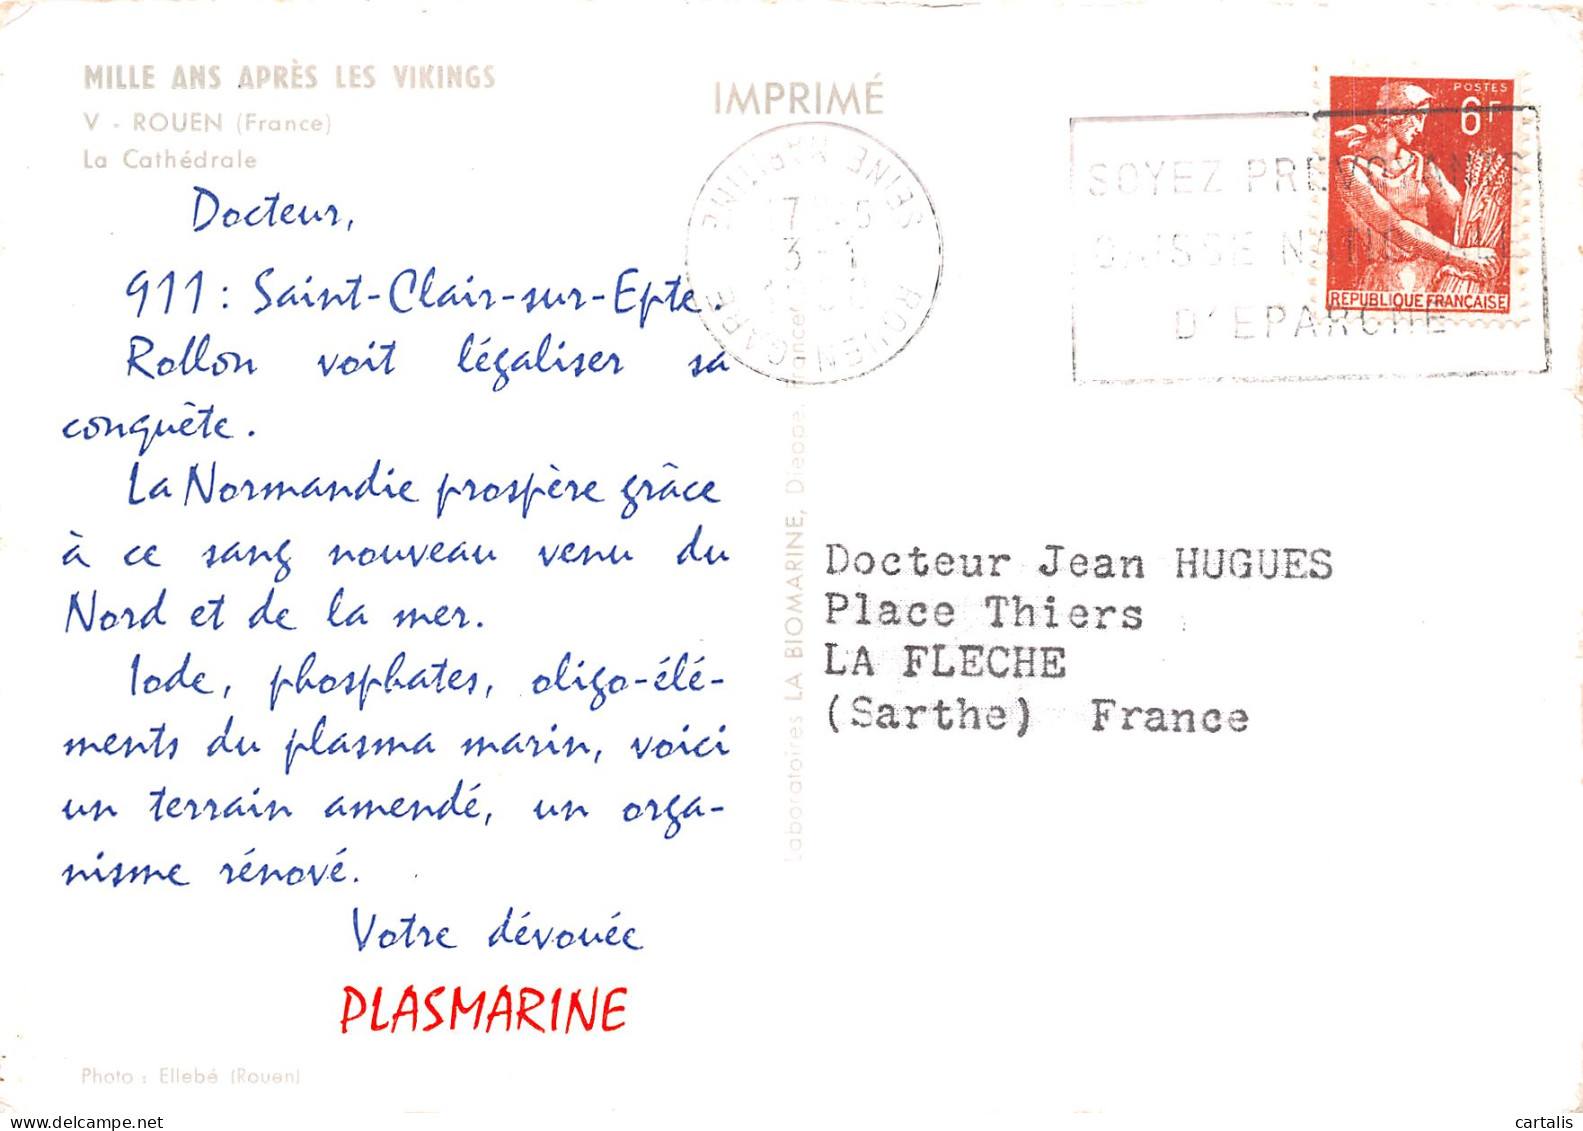 MILLE ANS APRÈS LES VIKINGS
V - ROUEN (France)
La Cathédrale
IMPRIMÉ
Docteur,
911 : Saint-Clair-sur-Epte.
Rollon voit légaliser sa
conquête.
La Normandie prospère grâce
à ce sang nouveau venu du
Nord et de la mer.
Iode, phosphates, oligo-élé-
ments du plasma marin, voici
un terrain amendé, un orga-
nisme rénové.
Votre dévouée
PLASMARINE
Photo : Ellebé (Rouen)
Laboratoires LA BIOMARINE, Dieppe, France
ROUEN GARE
SEINE MARITIME
3-1
SOYEZ PREVOYANTS
CAISSE NATIONALE
D'EPARGNE
POSTES
6F
REPUBLIQUE FRANÇAISE
Docteur Jean HUGUES
Place Thiers
LA FLECHE
(Sarthe) France
www.delcampe.net
cartalis